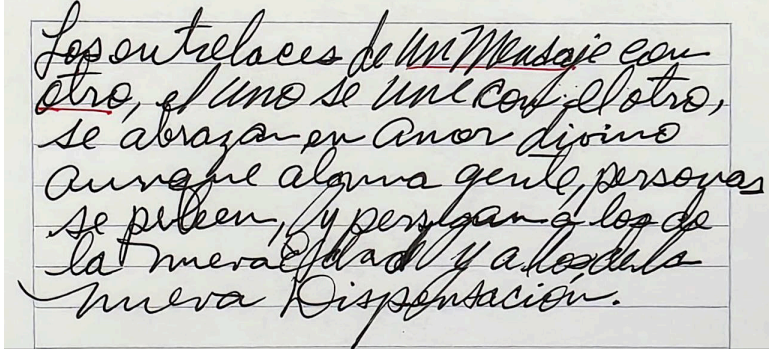 Los entrelaces de un Mensaje con
otro, el uno se une con el otro,
se abrazan en amor divino
aunque alguna gente, personas
se peleen, y persigan a los de
la nueva Edad y a los de la
nueva Dispensación.